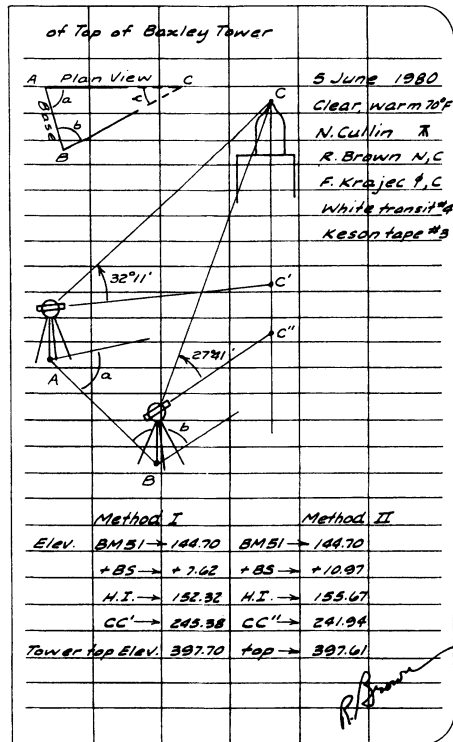 of Top of Baxley Tower
A Plan View C
a
c
Base
b
B
5 June 1980
Clear, warm 70°F
N. Cullin ⊼
R. Brown N, C
F. Krajec φ, C
White transit #4
Keson tape #3
C
32°11'
C'
C"
27°41'
A
a
b
B
Method I Method II
Elev. BM51→ 144.70 BM51→ 144.70
+BS→ +7.62 +BS→ +10.97
H.I.→ 152.32 H.I.→ 155.67
CC'→ 245.38 CC"→ 241.94
Tower top Elev. 397.70 top→ 397.61
R. Brown